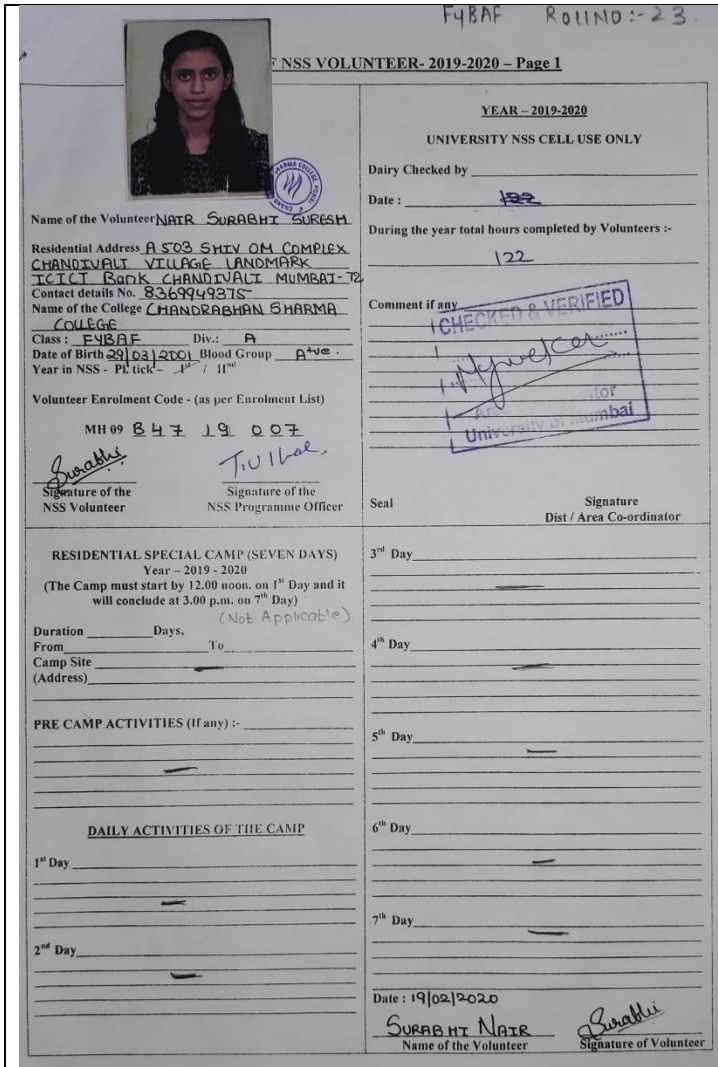 FYBAF ROLLNO:- 23.
F NSS VOLUNTEER- 2019-2020 – Page 1
Name of the Volunteer NAIR SURABHI SURESH
Residential Address A 503 SHIV OM COMPLEX
CHANDIVALI VILLAGE LANDMARK
ICICI Bank CHANDIVALI MUMBAI-72
Contact details No. 8369949375
Name of the College CHANDRABHAN SHARMA
COLLEGE
Class : FYBAF Div.: A
Date of Birth 29/03/2001 Blood Group A+ve.
Year in NSS - Pl. tick – Ist / IInd
Volunteer Enrolment Code - (as per Enrolment List)
MH 09 B47 19 007
Surabhi
Signature of the Signature of the
NSS Volunteer NSS Programme Officer
YEAR – 2019-2020
UNIVERSITY NSS CELL USE ONLY
Dairy Checked by
Date : 122
During the year total hours completed by Volunteers :-
122
Comment if any
CHECKED & VERIFIED
University of Mumbai
Seal Signature
Dist / Area Co-ordinator
RESIDENTIAL SPECIAL CAMP (SEVEN DAYS)
Year – 2019 - 2020
(The Camp must start by 12.00 noon. on 1st Day and it
will conclude at 3.00 p.m. on 7th Day)
(Not Applicable)
Duration Days,
From To
Camp Site
(Address)
PRE CAMP ACTIVITIES (If any) :-
DAILY ACTIVITIES OF THE CAMP
1st Day
2nd Day
3rd Day
4th Day
5th Day
6th Day
7th Day
Date : 19/02/2020
SURABHI NAIR Surabhi
Name of the Volunteer Signature of Volunteer